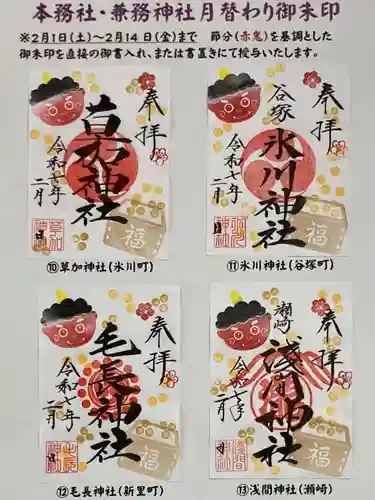 本務社・兼務神社月替わり御朱印
※2月1日(土)～2月14日(金)まで 節分(赤鬼)を基調とした
御朱印を直接の御書入れ、または書置きにて授与いたします。
奉拝
草加神社
令和七年
二月 日
福
⑩草加神社(氷川町)
奉拝
谷塚
氷川神社
令和七年
二月 日
福
⑪氷川神社(谷塚町)
奉拝
毛長神社
令和七年
二月 日
福
⑫毛長神社(新里町)
奉拝
瀬崎
浅間神社
令和七年
二月 日
福
⑬浅間神社(瀬崎)